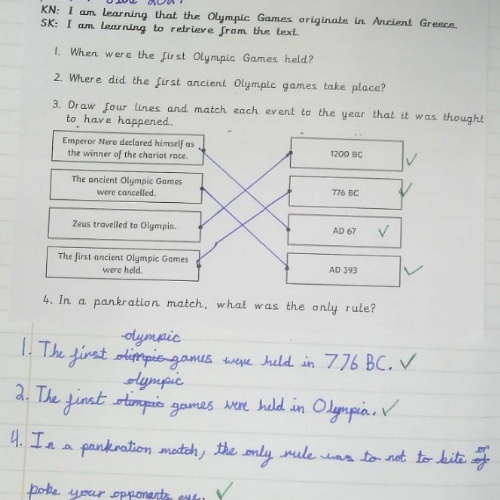 KN: I am learning that the Olympic Games originate in Ancient Greece.
SK: I am learning to retrieve from the text.
1. When were the first Olympic Games held?
2. Where did the first ancient Olympic games take place?
3. Draw four lines and match each event to the year that it was thought
to have happened.
Emperor Nero declared himself as
the winner of the chariot race.
1200 BC
The ancient Olympic Games
were cancelled.
776 BC
Zeus travelled to Olympia.
AD 67
The first ancient Olympic Games
were held.
AD 393
4. In a pankration match, what was the only rule?
olympic
1. The first olimpic games were held in 776 BC.
olympic
2. The first olimpic games were held in Olympia.
or
4. In a pankration match, the only rule was to not to bite of
poke your opponents eye.